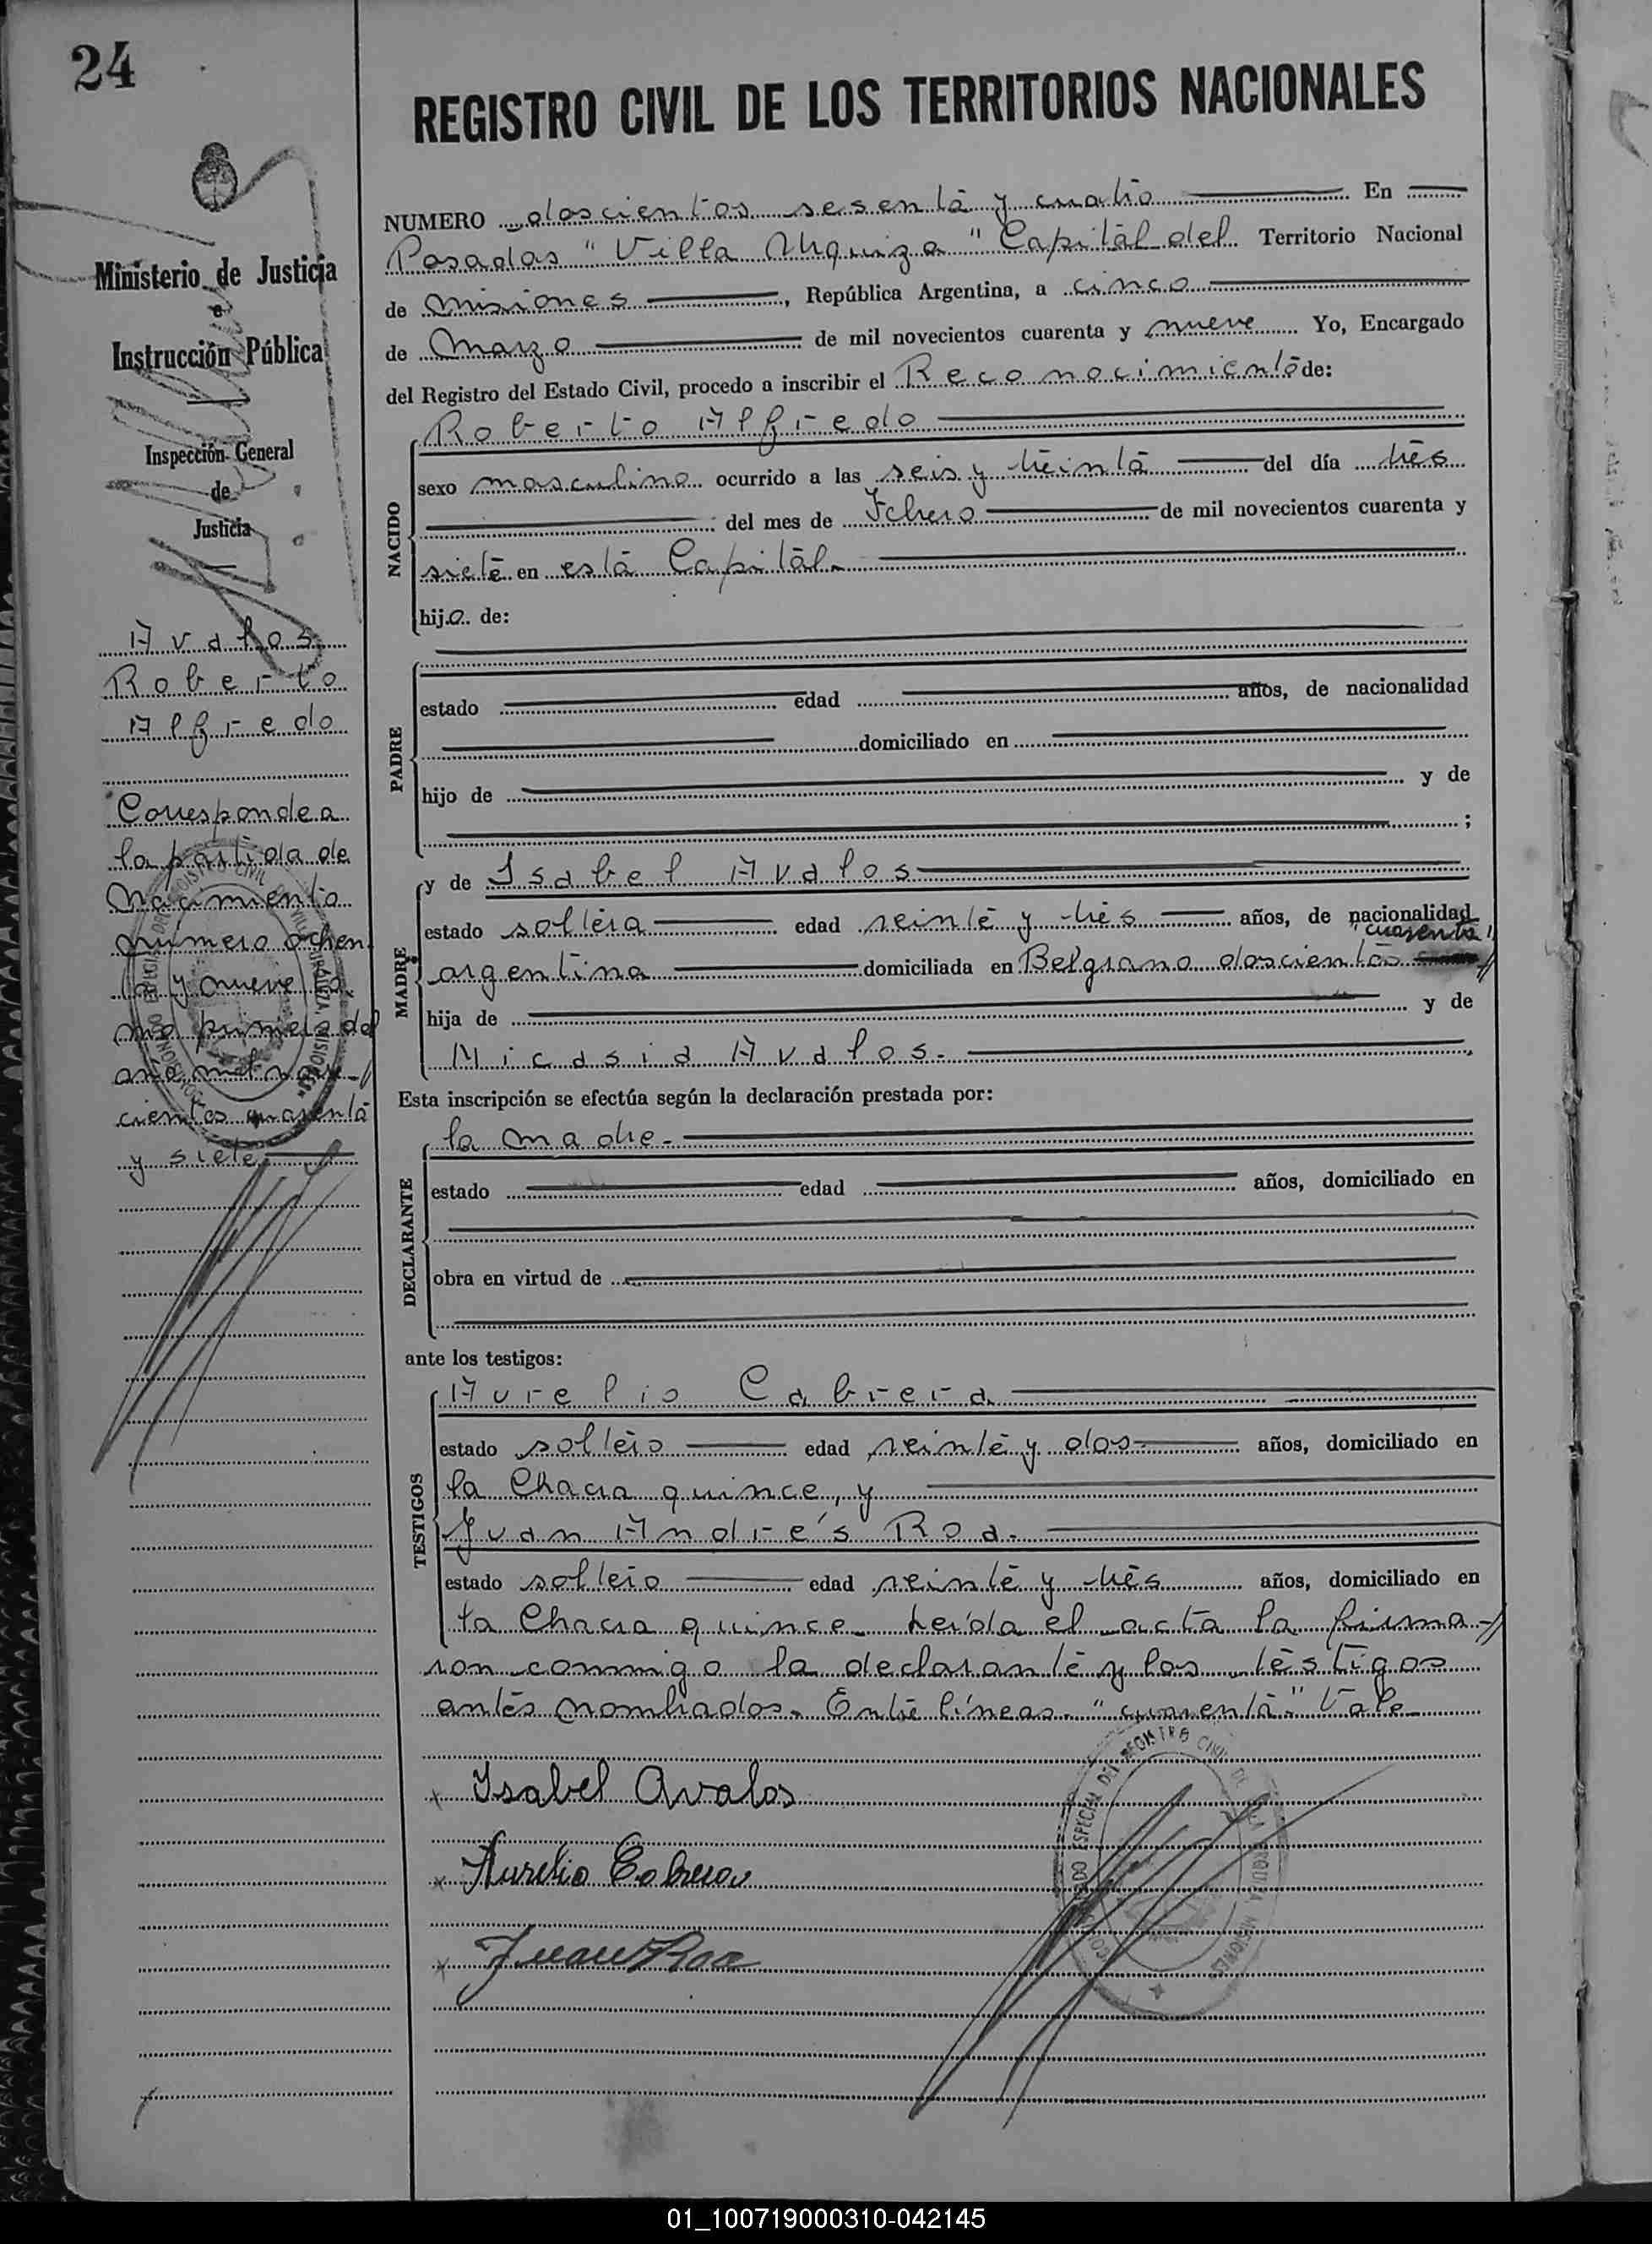 24
REGISTRO CIVIL DE LOS TERRITORIOS NACIONALES
Ministerio de Justicia
e
Instrucción Pública
Inspección General
de
Justicia
Avalos
Roberto
Alfredo
Corresponde a
la partida de
Nacimiento
número ochen
ta y nueve to
mo primero del
año mil nove-//
cientos cuarenta
y siete
NUMERO doscientos sesenta y cuatro En
Posadas "Villa Urquiza" Capital del Territorio Nacional
de Misiones, República Argentina, a cinco
de Marzo de mil novecientos cuarenta y nueve Yo, Encargado
del Registro del Estado Civil, procedo a inscribir el Reconocimiento de:
Roberto Alfredo
NACIDO
sexo masculino ocurrido a las seis y treinta del día tres
del mes de Febrero de mil novecientos cuarenta y
siete en esta Capital.
hijo de:
PADRE
estado edad años, de nacionalidad
domiciliado en
hijo de y de
;
MADRE
y de Isabel Avalos
estado soltera edad veinte y tres años, de nacionalidad
"cuarenta"
argentina domiciliada en Belgrano doscientos //
hija de y de
Micasia Avalos.
Esta inscripción se efectúa según la declaración prestada por:
DECLARANTE
la madre.
estado edad años, domiciliado en
obra en virtud de
ante los testigos:
TESTIGOS
Aurelio Cabrera
estado soltero edad veinte y dos años, domiciliado en
la Chacra quince, y
Juan Andrés Roa.
estado soltero edad veinte y tres años, domiciliado en
la Chacra quince. Leída el acta la firma-//
ron conmigo la declarante y los testigos
antes nombrados. Entre líneas. "cuarenta" Vale
x Isabel Avalos
x Aurelio Cabrera
x Juan Roa
REGISTRO CIVIL DE VILLA URQUIZA MISIONES
01_100719000310-042145